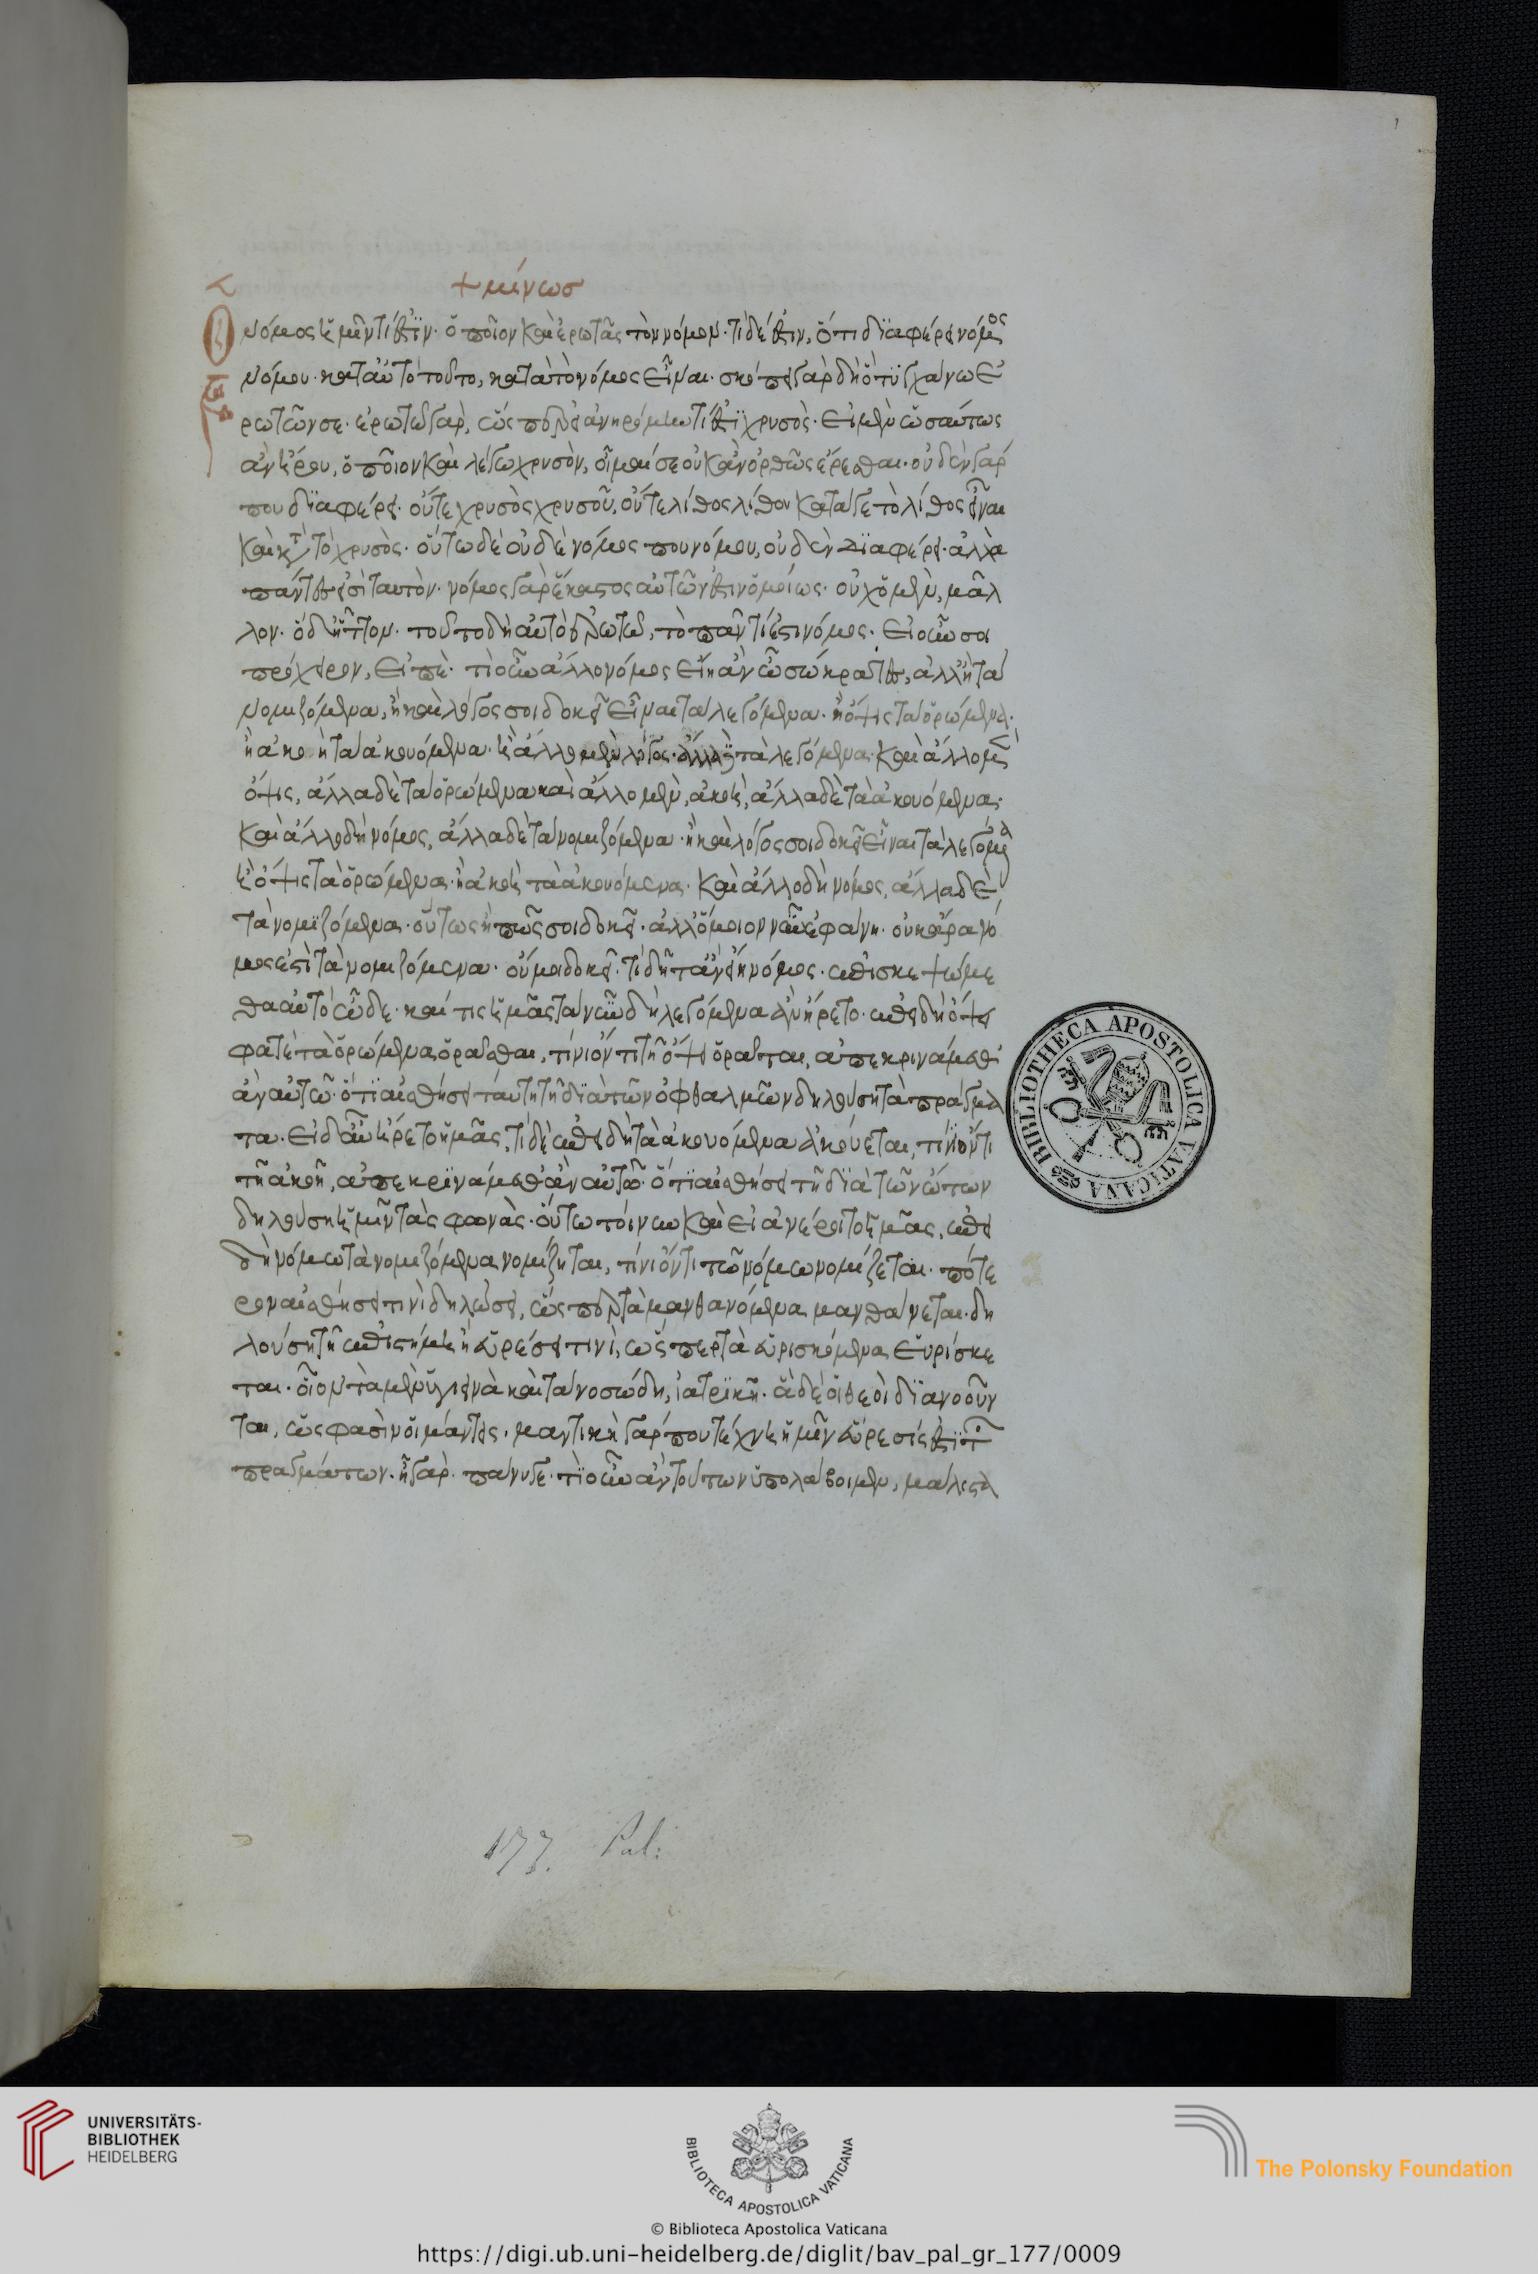 + μίνωσ
νόμος ἡμῖν τί ἐστϊν· ὁποῖον καὶ ἐρωτᾶς τὸν νόμον· τί δέ ἐστιν, ὅτι δϊαφέρει νόμος
νόμου· κατ αὐτὸ τοῦτο, κατὰ τὸ νόμος εἶναι· σκόπει γὰρ δὴ ὃ τϋγχάνω ἐ
ρωτῶν σε· ἐρωτῶ γὰρ, ὥσπερ εἰ ἀνηρόμην τί ἐστϊ χρυσὸς· εἰ μὲν ὡσαύτως
ἀνήρου, ὁποῖον καὶ λέγω χρυσὸν, οἶμαί σε οὐκ ἂν ὀρθῶς ἐρέσθαι· οὐδὲν γάρ
που δϊαφέρει· οὔτε χρυσὸς χρυσοῦ, οὔτε λίθος λίθου κατά γε τὸ λίθος εἶναι
καὶ κατὰ τὸ χρυσὸς· οὕτω δὲ οὐδὲ νόμος που νόμου, οὐδὲν δϊαφέρει· ἀλλὰ
πάντες εἰσὶ ταυτὸν· νόμος γὰρ ἕκαστος αὐτῶν ἐστιν ὁμοίως· οὐχ ὁ μὲν, μᾶλ
λον· ὁ δ ἧττον· τοῦτο δὴ αὐτὸ ἐρωτῶ, τὸ πᾶν τί ἐστι νόμος· εἰ οὖν σοι
πρόχειρον, εἰπὲ· τί οὖν ἄλλο νόμος εἴη ἂν ὦ σώκρατες, ἀλλ ἢ τὰ
νομιζόμενα, ἦ καὶ λόγος σοι δοκεῖ εἶναι τὰ λεγόμενα· ἢ ὄψις τὰ ὁρώμενα·
ἢ ἀκοὴ τὰ ἀκουόμενα· ἢ ἄλλο μὲν λόγος· ἄλλα δὲ τὰ λεγόμενα· καὶ ἄλλο μὲν
ὄψις, ἄλλα δὲ τὰ ὁρώμενα καὶ ἄλλο μὲν, ἀκοὴ, ἄλλα δὲ τὰ ἀκουόμενα·
καὶ ἄλλο δὴ νόμος, ἄλλα δὲ τὰ νομιζόμενα· ἢ καὶ λόγος σοι δοκεῖ εἶναι τὰ λεγόμενα
ἢ ὄψις τὰ ὁρώμενα· ἢ ἀκοὴ τὰ ἀκουόμενα· καὶ ἄλλο δὴ νόμος, ἄλλα δὲ
τὰ νομϊζόμενα· οὕτως ἢ πῶς σοι δοκεῖ· ἄλλό μοι νῦν ἐφάνη· οὐκ ἄρα νό
μος ἐστὶ τὰ νομιζόμενα· οὔ μοι δοκεῖ· τί δῆτ ἂν εἴη νόμος· ἐπισκεψώμε
θα αὐτὸ ὧδε· καί τις ἡμᾶς τὰ νῦν δὴ λεγόμενα ἀνήρετο· ἐπειδὴ ὄψει
φατὲ τὰ ὁρώμενα ὁρᾶσθαι, τίνι ὄντι τῇ ὄψει ὁρᾶται, ἀπεκρινάμεθ
ἂν αὐτῷ· ὅτϊ αἰσθήσει ταύτῃ τῇ δϊὰ τῶν ὀφθαλμῶν δηλούσῃ τὰ πράγμα
τα· εἰ δ αὖ ἤρετο ἡμᾶς, τί δὲ ἐπειδὴ τὰ ἀκουόμενα ἀκούεται, τίνϊ ὄντι
τῇ ἀκοῇ, ἀπεκρϊνάμεθ ἂν αὐτῷ· ὅτϊ αἰσθήσει τῇ δϊὰ τῶν ὤτων
δηλούσῃ ἡμῖν τὰς φωνὰς· οὕτω τοίνυν καὶ εἰ ἀνέροιτο ἡμᾶς, ἐπει
δὴ νόμω τὰ νομιζόμενα νομίζηται, τίνι ὄντι τῶ νόμω νομίζεται· πότε
ρον αἰσθήσει τινὶ δηλώσει, ὥσπερ τὰ μανθανόμενα μανθάνεται· δη
λούσῃ τῇ ἐπιστήμῃ ἢ εὑρέσει τινὶ, ὥσπερ τὰ εὑρισκόμενα εὑρίσκε
ται· οἷον τὰ μὲν ὑγιεινὰ καὶ τὰ νοσώδη, ἰατρϊκῇ· ἃ δὲ οἱ θεοὶ δϊανοοῦν
ται, ὥς φασὶν οἱ μάντεις· μαντικὴ γάρ που τέχνη ἡμῖν εὕρεσίς ἐστϊ τῶν
πραγμάτων· ἦ γὰρ· πάνυ γε· τί οὖν ἂν τούτων ὑπολάβοιμεν, μάλιστα
177. Pal:
BIBLIOTHECA APOSTOLICA VATICANA
UNIVERSITÄTS-
BIBLIOTHEK
HEIDELBERG
BIBLIOTECA APOSTOLICA VATICANA
The Polonsky Foundation
© Biblioteca Apostolica Vaticana
https://digi.ub.uni-heidelberg.de/diglit/bav_pal_gr_177/0009